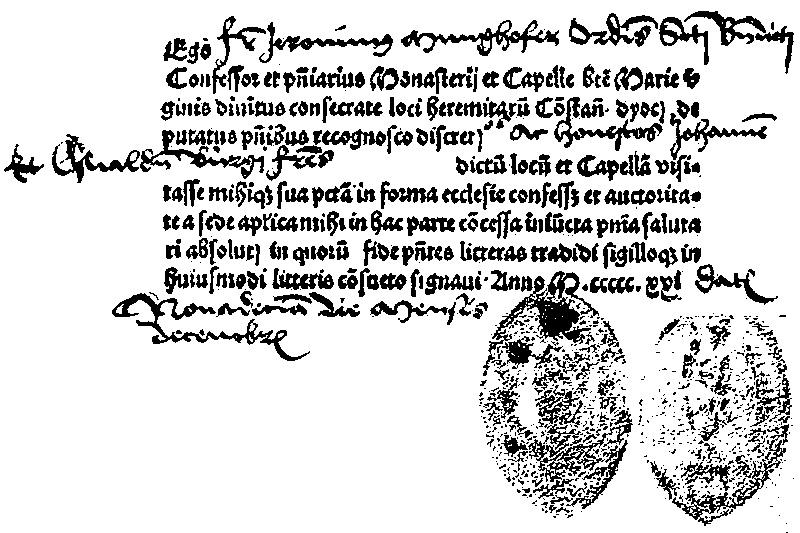 Ego fr̄ Jeronimus Munghofer Ordīs Scti Bn̄dicti
Confessor et pñiarius Monasterij et Capelle btē Marie v
ginis diuitus consecrate loci heremitarū Cōstañ. dyoc. de
putatus pñibus recognosco discret. ac honestos Johannē
et Oswaldū Burgi frēs dictū locū et Capellā visi-
tasse mihiqȝ sua pctā in forma ecclesie confessȝ et auctorita-
te a sede aplica mihi in hac parte cōcessa iniūcta pnīa saluta
ri absolui in quorū fide pñtes litteras tradidi sigilloqȝ in
huiusmodi litteris cōsueto signaui. Anno M.ccccc.xxi dat.
Nonadecima die Mensis
decembr.